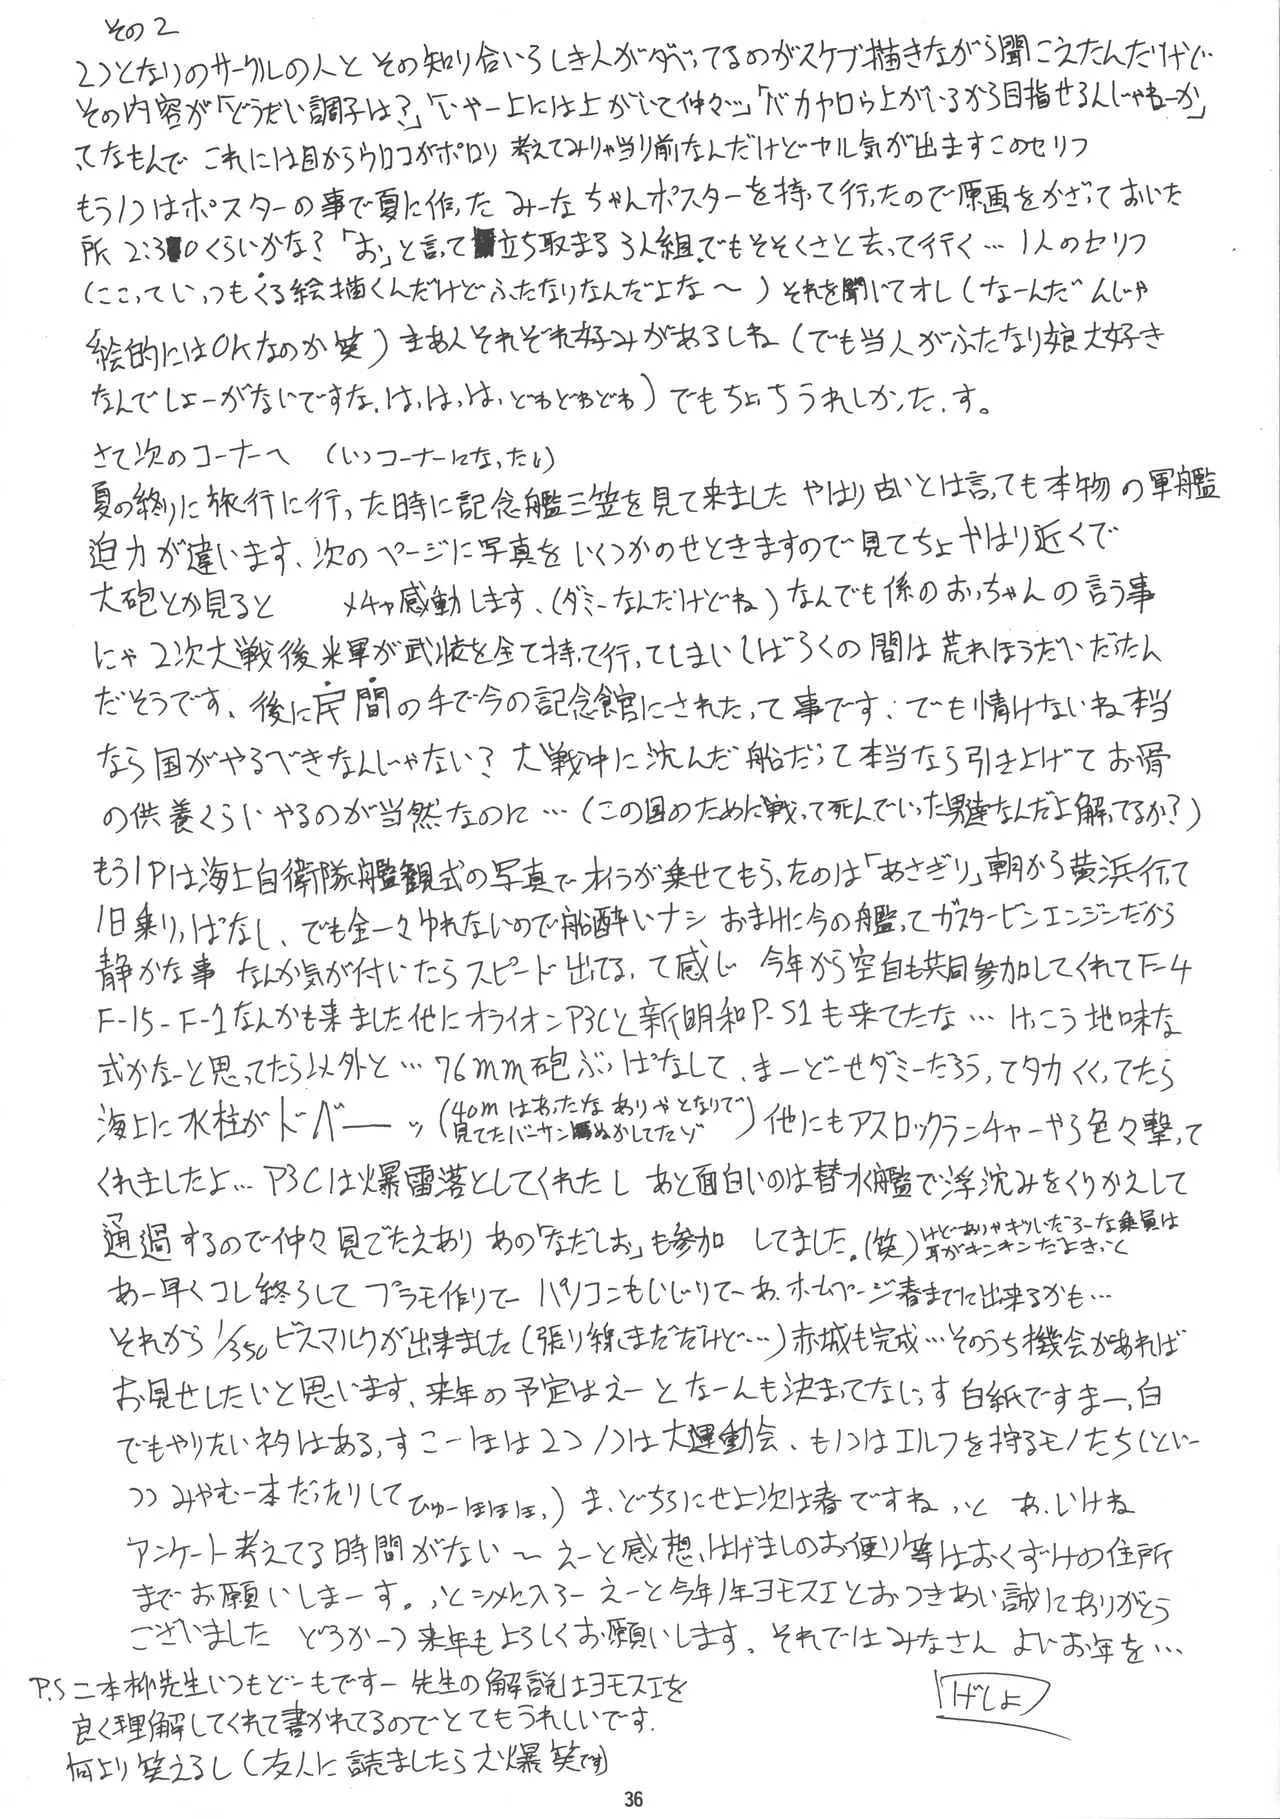 その2
2つとなりのサークルの人と その知り合いらしき人がダベってるのがスケブ描きながら聞こえたんだけど
その内容が「どうだい調子は?」「いやー上には上がいて仲々…」「バカヤロウ上がいるから目指せるんじゃねーか」
ってなもんで これには目からウロコがポロリ 考えてみりゃ当り前なんだけどヤル気が出ますこのセリフ
もう1つはポスターの事で夏に作った みーなちゃんポスターを持って行ったので原画をかざっておいた
所 2:30くらいかな?「お」と言って立ち止まる3人組でもそそくさと去って行く… 1人のセリフ
(ここっていっつもくる絵描くんだけどふたなりなんだよな〜)それを聞いてオレ(なーんだ んじゃ
絵的にはOKなのか 笑)まあ人それぞれ好みがあるしね(でも当人がふたなり娘大好き
なんでしょーがないですな.はっはっは, どわどわどわ)でもちょっちうれしかった.す。
さて次のコーナーへ (いつコーナーになったい)
夏の終りに旅行に行った時に記念艦三笠を見て来ました やはり古いとは言っても本物の軍艦
迫力が違います、次のページに写真をいくつかのせときますので見てちょ やはり近くで
大砲とか見ると メチャ感動します、(ダミーなんだけどね)なんでも係のおっちゃんの言う事
にゃ2次大戦後米軍が武装を全て持って行ってしまいしばらくの間は荒れほうだいだったん
だそうです、後に民間の手で今の記念館にされたって事です、でも情けないね本当
なら国がやるべきなんじゃない? 大戦中に沈んだ船だって本当なら引き上げてお骨
の供養くらいやるのが当然なのに…(この国のために戦って死んでいった男達なんだよ解ってるか?)
もう1Pは海上自衛隊艦観式の写真でオイラが乗せてもらったのは「あさぎり」朝から横浜行って
1日乗りっぱなし、でも全々ゆれないので船酔いナシ おまけに今の艦ってガスタービンエンジンだから
静かな事 なんか気が付いたらスピード出てる,て感じ 今年から空自も共同参加してくれてF-4
F-15-F-1なんかも来ました他にオライオンP3Cと新明和P-S1も来てたな… けっこう地味な
式かなーと思ってたら以外と… 76mm砲ぶっぱなして、まーどーせダミーだろうってタカくくってたら
海上に水柱がドバーーッ(40mはあったな ありゃとなりで見てたバーサン腰ぬかしてたゾ)他にもアスロックランチャーやら色々撃って
くれましたよ… P3Cは爆雷落としてくれたし あと面白いのは替水艦で浮沈みをくりかえして
通過するので仲々見ごたえあり あの「なだしお」も参加 してました。(笑)けどありゃキツいだろーな乗員は耳がキンキンだよきっと
あー早くコレ終らして プラモ作りてー パソコンもいじりてーあ、ホームページ春までに出来るかも…
それから 1/350 ビスマルクが出来ました(張り線まだだけど…)赤城も完成…そのうち機会があれば
お見せしたいと思います、来年の予定はえーと なーんも決まってなしっす 白紙ですまーっ白
でもやりたいネタはある,すこーほは2つ 1つは大運動会、もう1つはエルフを狩るモノたち(といー
つつみやむー本だったりして ひゅーほほほっ)ま、どちらにせよ次は春ですね っと あ,いけね
アンケート考えてる時間がない〜 えーと感想、はげましのお便り等はおくずけの住所
までお願いしまーす。っとシメに入ろー えーと今年1年ヨモスエとおつきあい誠にありがとう
ございました どうかーつ来年もよろしくお願いします、それではみなさん よいお年を…
げしょ
P.S 二本柳先生いつもどーもですー 先生の解説はヨモスエを
良く理解してくれて書かれてるのでとてもうれしいです.
何より笑えるし(友人に読ましたら大爆笑です)
36